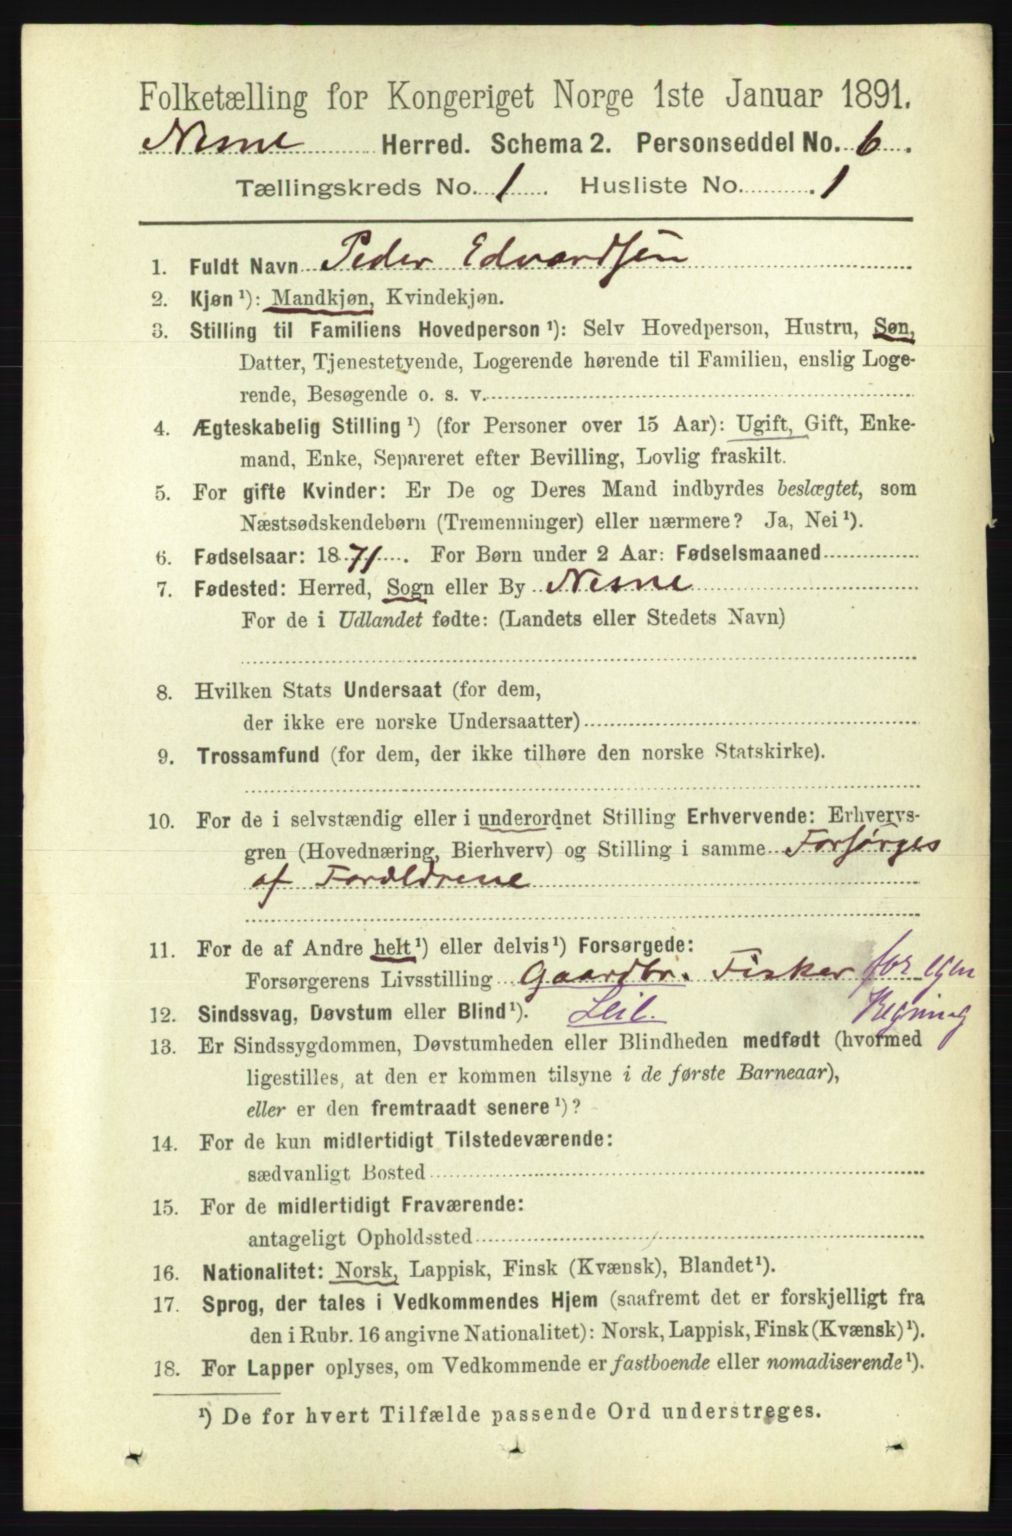 Folketælling for Kongeriget Norge 1ste Januar 1891.
Nesne Herred. Schema 2. Personseddel No. 6.
Tællingskreds No. 1. Husliste No. 1
1. Fuldt Navn Peder Edvardsen
2. Kjøn ¹): Mandkjøn, Kvindekjøn.
3. Stilling til Familiens Hovedperson ¹): Selv Hovedperson, Hustru, Søn,
Datter, Tjenestetyende, Logerende hørende til Familien, enslig Loge-
rende, Besøgende o. s. v.
4. Ægteskabelig Stilling ¹) (for Personer over 15 Aar): Ugift, Gift, Enke-
mand, Enke, Separeret efter Bevilling, Lovlig fraskilt.
5. For gifte Kvinder: Er De og Deres Mand indbyrdes beslægtet, som
Næstsødskendebørn (Tremenninger) eller nærmere? Ja, Nei ¹).
6. Fødselsaar: 1871. For Børn under 2 Aar: Fødselsmaaned
7. Fødested: Herred, Sogn eller By Nesne
For de i Udlandet fødte: (Landets eller Stedets Navn)
8. Hvilken Stats Undersaat (for dem,
der ikke ere norske Undersaatter)
9. Trossamfund (for dem, der ikke tilhøre den norske Statskirke).
10. For de i selvstændig eller i underordnet Stilling Erhvervende: Erhvervs-
gren (Hovednæring, Bierhverv) og Stilling i samme Forsørges
af Forældrene
11. For de af Andre helt ¹) eller delvis ¹) Forsørgede:
Forsørgerens Livsstilling Gaardbr. Fisker for egen
12. Sindssvag, Døvstum eller Blind ¹). Leil. Regning
13. Er Sindssygdommen, Døvstumheden eller Blindheden medfødt (hvormed
ligestilles, at den er kommen tilsyne i de første Barneaar),
eller er den fremtraadt senere ¹)?
14. For de kun midlertidigt Tilstedeværende:
sædvanligt Bosted
15. For de midlertidigt Fraværende:
antageligt Opholdssted
16. Nationalitet: Norsk, Lappisk, Finsk (Kvænsk), Blandet ¹).
17. Sprog, der tales i Vedkommendes Hjem (saafremt det er forskjelligt fra
den i Rubr. 16 angivne Nationalitet): Norsk, Lappisk, Finsk (Kvænsk) ¹).
18. For Lapper oplyses, om Vedkommende er fastboende eller nomadiserende ¹).
¹) De for hvert Tilfælde passende Ord understreges.